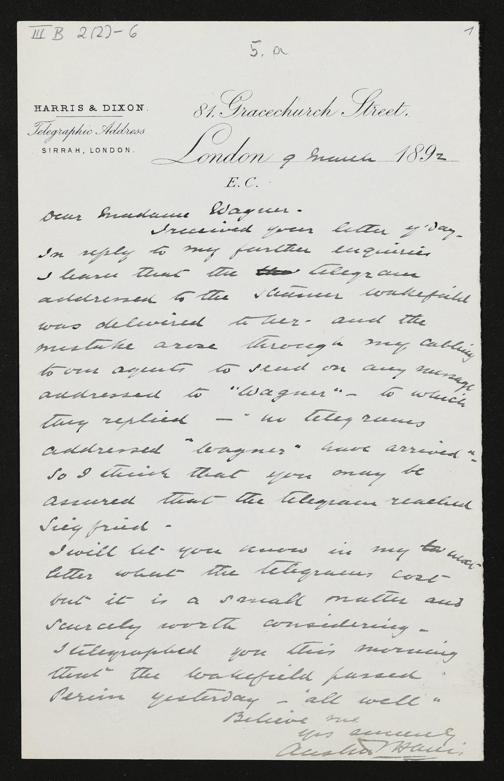 III B 2(2)-6
1
5. a
HARRIS & DIXON.
Telegraphic Address
SIRRAH, LONDON.
81, Gracechurch Street,
London 9 March 1892
E.C.
Dear Madame Wagner.
I received your letter y'day.
In reply to my further enquiries
I learn that the telegram
addressed to the steamer Wakefield
was delivered to her. and the
mistake arose through my cabling
to our agents to send on any message
addressed to "Wagner" - to which
they replied - "no telegrams
addressed "Wagner" have arrived".
So I think that you may be
assured that the telegram reached
Siegfried -
I will let you know in my next
letter what the telegrams cost
but it is a small matter and
scarcely worth considering -
I telegraphed you this morning
that the Wakefield passed
Perim yesterday - "all well"
Believe me
yrs sincerely
Harris